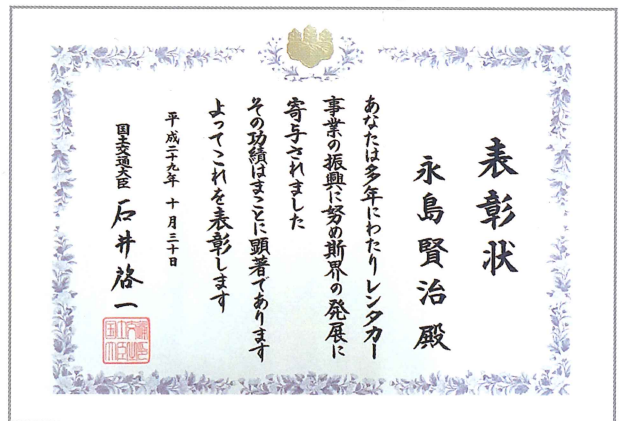 表彰状
永島賢治殿
あなたは多年にわたりレンタカー
事業の振興に努め斯界の発展に
寄与されました
その功績はまことに顕著であります
よってこれを表彰します
平成二十九年十月三十日
国土交通大臣 石井啓一